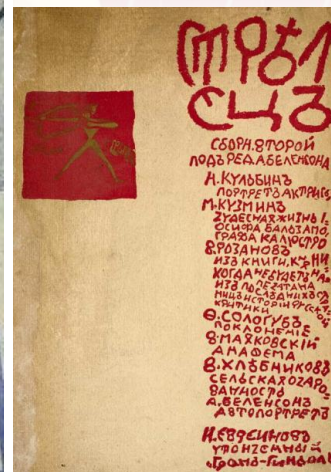 СТРѢЛ
ЕЦЪ
СБОРН. ВТОРОЙ
ПОДЪ РЕД. А БЕЛЕНСОНА
Н. КУЛЬБИНЪ
ПОРТРЕТЪ АКТРИСЫ
М. КУЗМИНЪ
ЧУДЕСНАЯ ЖИЗНЬ І-
ОСИФА БАЛЬЗАМО,
ГРАФА КАЛІОСТРО
В. РОЗАНОВЪ
ИЗЪ КНИГИ, К. НИ
КОГДА НЕ БУДЕТЪ НА-
ПЕЧАТАНА
КРИТИКИ
Ѳ. СОЛОГУБЪ
ПОКЛОНЕНІЕ
В. МАЯКОВСКІЙ
АНАФЕМА
В. ХЛѢБНИКОВЪ
СЕЛЬСКАЯ ОЧАРО-
ВАННОСТЬ
А. БЕЛЕНСОНЪ
АВТОПОРТРЕТЪ
Н. ЕВРЕИНОВЪ